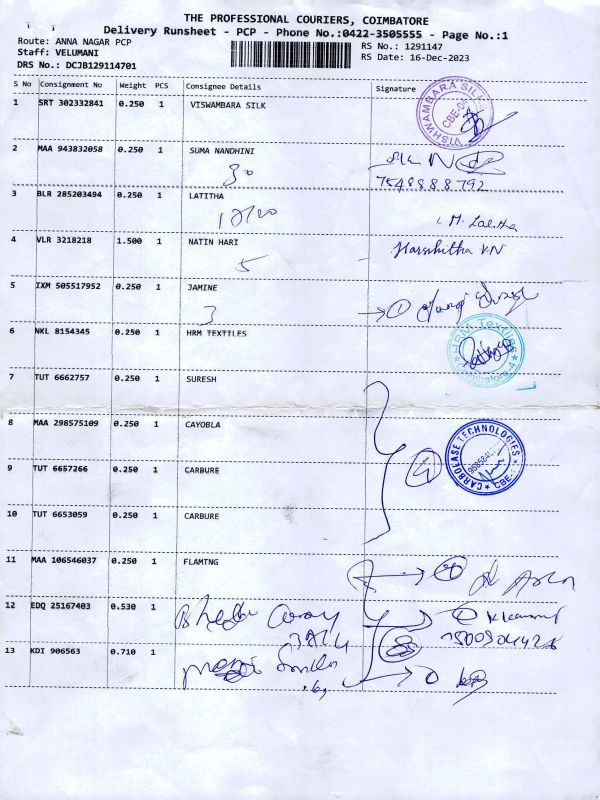 THE PROFESSIONAL COURIERS, COIMBATORE
Delivery Runsheet - PCP - Phone No.:0422-3505555 - Page No.:1
Route: ANNA NAGAR PCP
Staff: VELUMANI
DRS No.: DCJB129114701
RS No.: 1291147
RS Date: 16-Dec-2023
S No Consignment No Weight PCS Consignee Details Signature
1 SRT 302332841 0.250 1 VISWAMBARA SILK
VISHWAMBARA SILK
CBE-04
2 MAA 943832058 0.250 1 SUMA NANDHINI
30
7548888792
3 BLR 285203494 0.250 1 LATITHA
M. Lalitha
4 VLR 3218218 1.500 1 NATIN HARI
5
Harshitha V.N
5 IXM 505517952 0.250 1 JAMINE
3
6 NKL 8154345 0.250 1 HRM TEXTILES
HRM Textiles
Coimbatore-4
7 TUT 6662757 0.250 1 SURESH
8 MAA 298575109 0.250 1 CAYOBLA
4
CARBOEASE TECHNOLOGIES
CBE
9 TUT 6657266 0.250 1 CARBURE
10 TUT 6653059 0.250 1 CARBURE
11 MAA 106546037 0.250 1 FLAMTNG
12 EDQ 25167403 0.530 1
13 KDI 906563 0.710 1